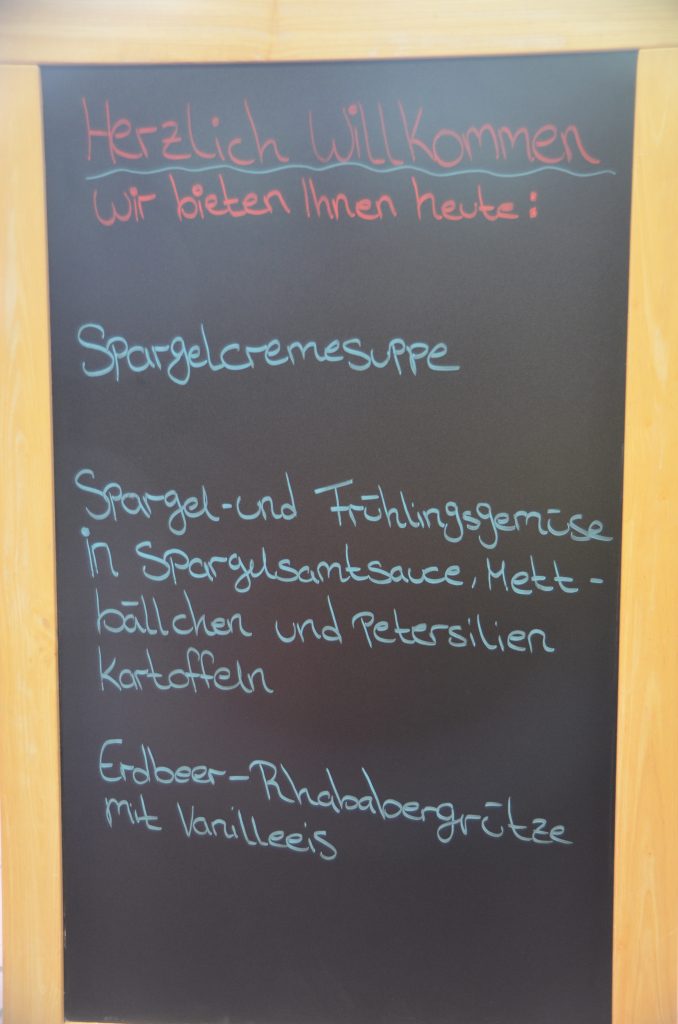 Herzlich Willkommen
Wir bieten Ihnen heute:
Spargelcremesuppe
Spargel-und Frühlingsgemüse
in Spargelsamtsauce, Mett-
bällchen und Petersilien
Kartoffeln
Erdbeer-Rhababergrütze
mit Vanilleeis